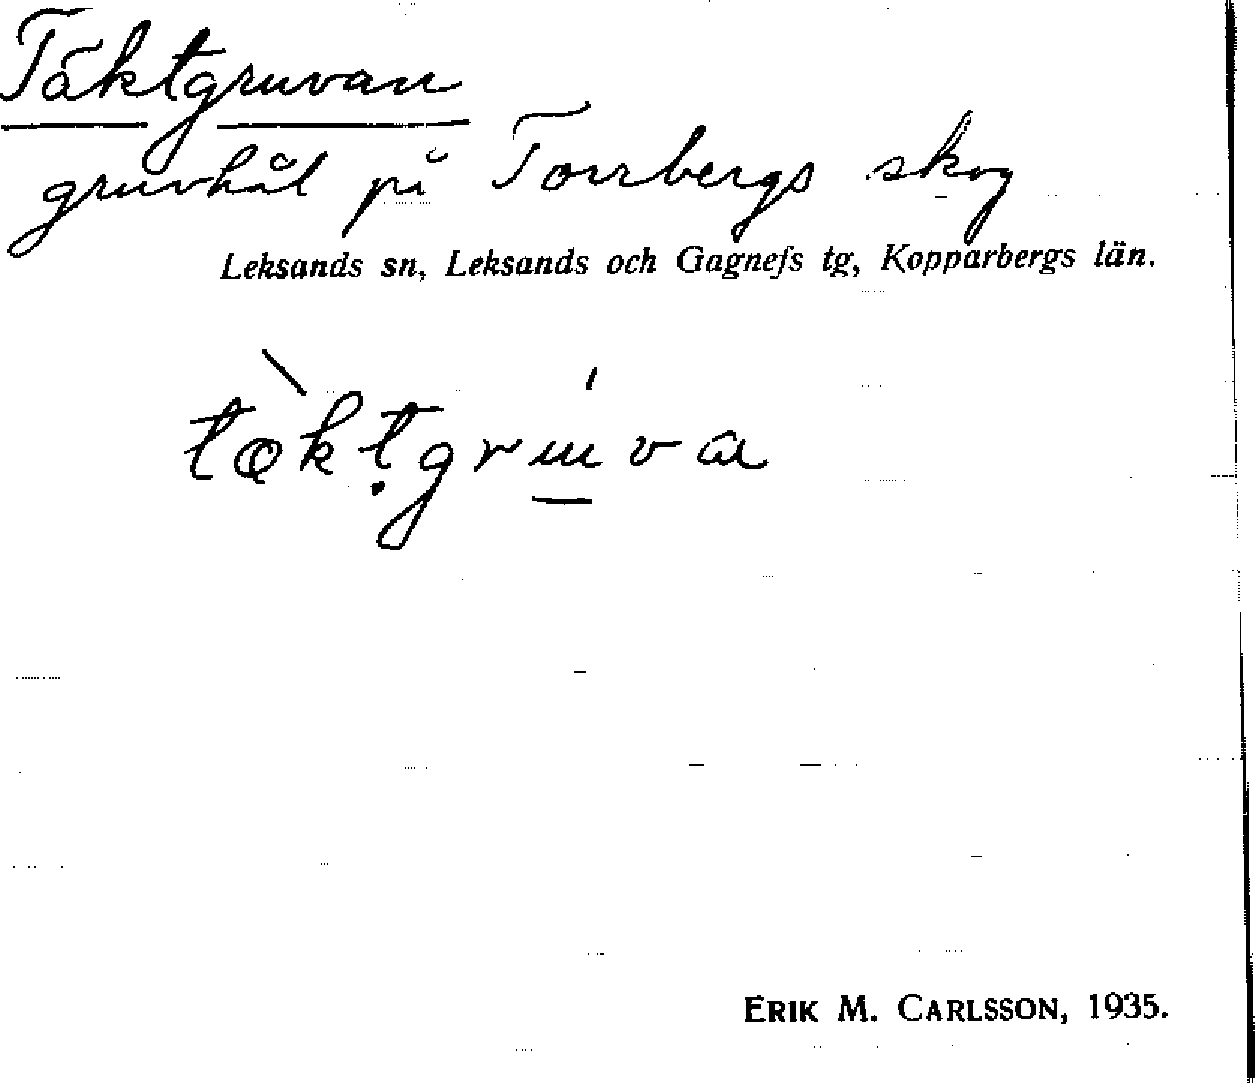 Täktgruvan
gruvhål på Torrbergs skog
Leksands sn, Leksands och Gagnefs tg, Kopparbergs län.
ERIK M. CARLSSON, 1935.